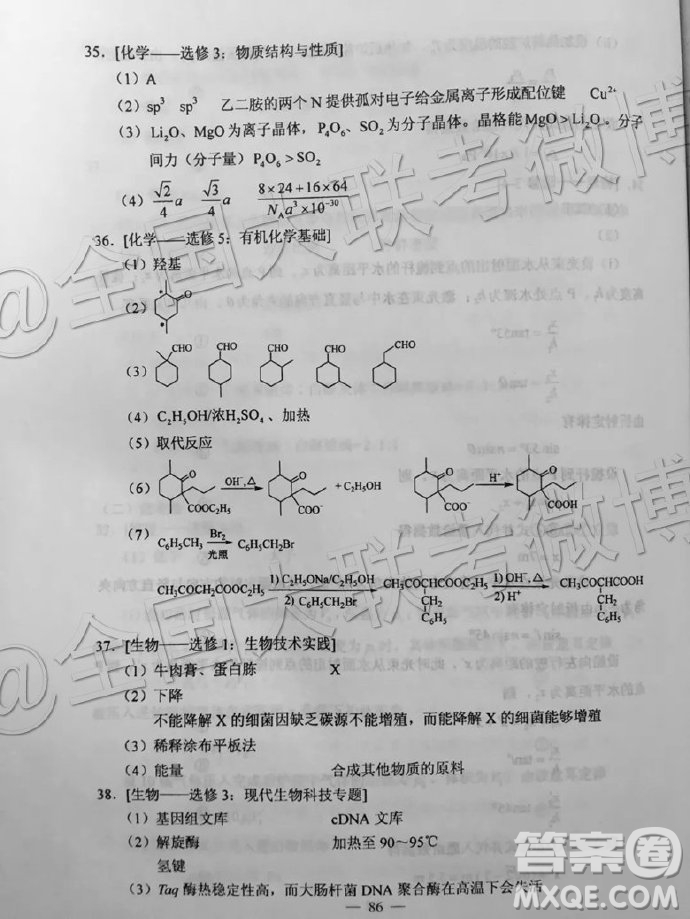 35. [化学——选修3：物质结构与性质]
(1) A
(2) sp³ sp³ 乙二胺的两个N提供孤对电子给金属离子形成配位键 Cu²⁺
(3) Li₂O、MgO为离子晶体，P₄O₆、SO₂为分子晶体。晶格能MgO＞Li₂O。分子
间力（分子量）P₄O₆＞SO₂
(4) √2/4 a √3/4 a (8×24+16×64)/(N_A a³×10⁻³⁰)
36. [化学——选修5：有机化学基础]
(1) 羟基
(2) O
(3) CHO CHO CHO CHO CHO
(4) C₂H₅OH/浓H₂SO₄、加热
(5) 取代反应
(6) O COOC₂H₅ OH⁻,△ O COO⁻ + C₂H₅OH O COO⁻ H⁺ O COOH
(7)
C₆H₅CH₃ Br₂ 光照 C₆H₅CH₂Br
CH₃COCH₂COOC₂H₅ 1) C₂H₅ONa/C₂H₅OH 2) C₆H₅CH₂Br CH₃COCHCOOC₂H₅ CH₂ C₆H₅ 1) OH⁻,△ 2) H⁺ CH₃COCHCOOH CH₂ C₆H₅
37. [生物——选修1：生物技术实践]
(1) 牛肉膏、蛋白胨 X
(2) 下降
不能降解X的细菌因缺乏碳源不能增殖，而能降解X的细菌能够增殖
(3) 稀释涂布平板法
(4) 能量 合成其他物质的原料
38. [生物——选修3：现代生物科技专题]
(1) 基因组文库 cDNA文库
(2) 解旋酶 加热至90~95℃
氢键
(3) Taq酶热稳定性高，而大肠杆菌DNA聚合酶在高温下会失活
— 86 —
@全国大联考微博
@全国大联考微博
答案圈
MXQE.COM